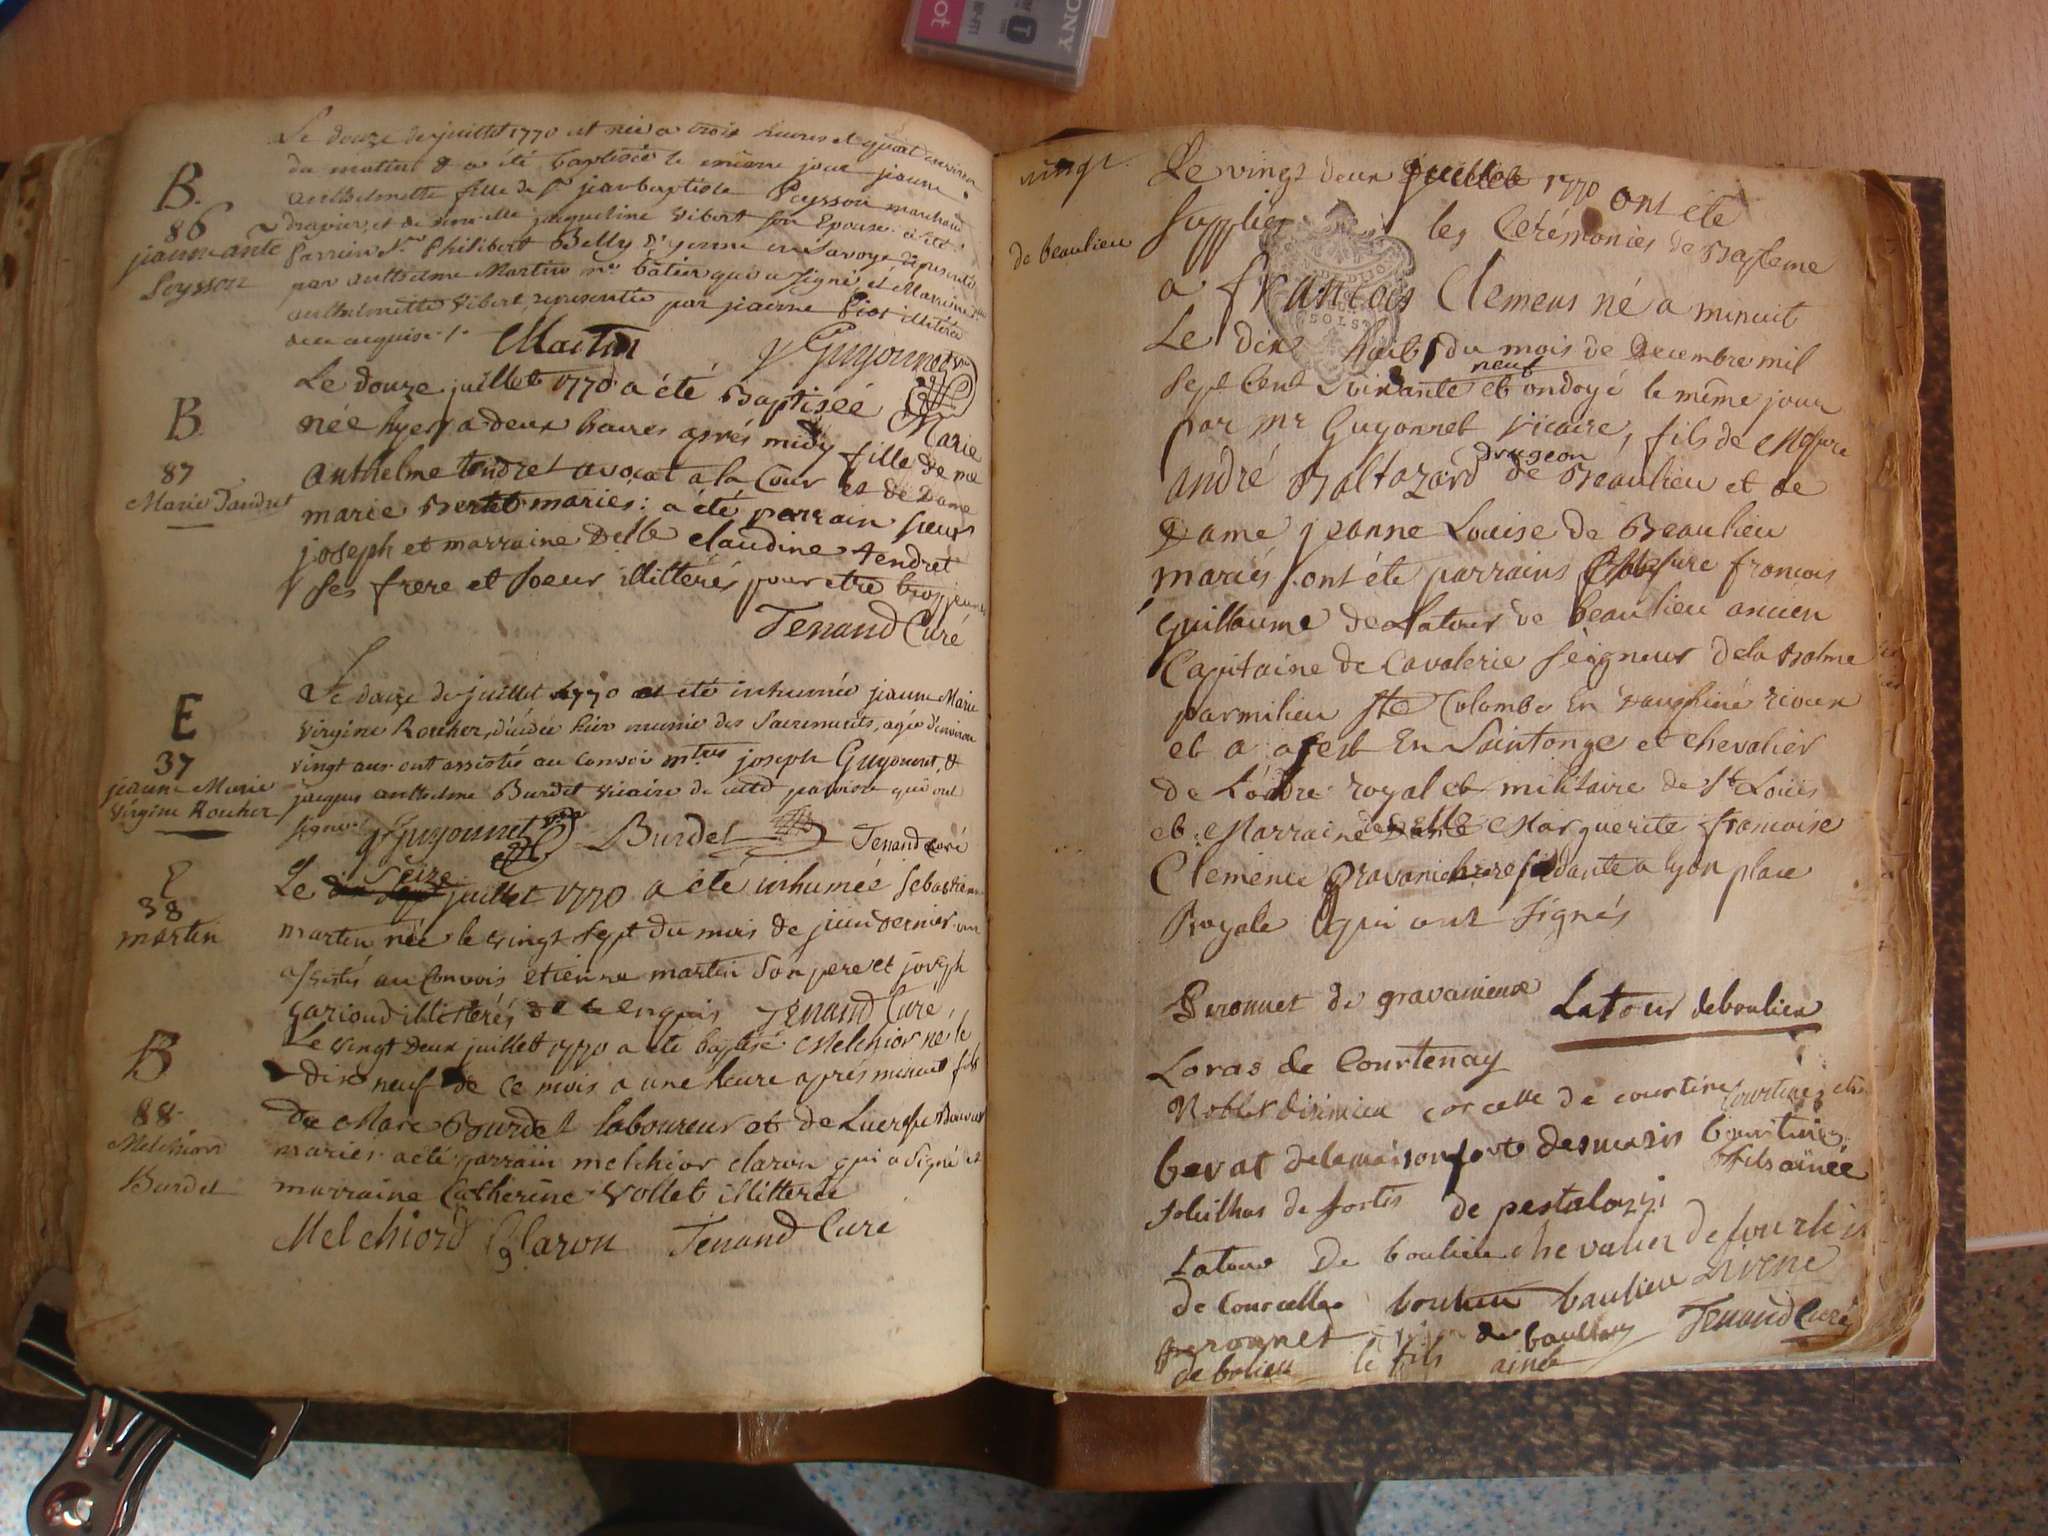 SONY
Le douze de juillet 1770 est née a trois heures et quart environ
du matin & a été baptisée le même jour jeanne
anthelmette fille de Sr jean baptiste Peysson marchand
drapier, et de demoiselle jacqueline Vibert son Epouse. a été
Parrien Sr Philibert Belly d'yenne en Savoye représenté
par anthelme Martin me bâtier qui a signé et Marraine
anthelmette Vibert représentée par jeanne Piot illiterée
de ce enquise
B.
86
jeanne ante
Peysson
Martin Guyonnet vic
Le douze juillet 1770 a été Baptisée Marie
née hyer a deux heures aprés midy fille de me
Anthelme tendret avocat a la Cour et de Dame
marie Bertet mariés: a été parrain sieur
joseph et marraine Delle claudine tendret
ses frere et soeur illitérés pour etre trop jeunes
Tenand Curé
B.
87
Marie Tendret
Le douze de juillet 1770 a été inhumée jeanne Marie
Virgine Rouher, décédée hier munie des Sacrements, agée d'environ
vingt ans ont assisté au convoi mtres joseph Guyonnet, &
jacques anthelme Burdet vicaire de cette paroisse qui ont
signé
E
37
jeanne Marie
Virgine Rouher
Guyonnet vic Burdet Tenand curé
Le dix sept Seize juillet 1770 a été inhumée Sebastienne
martin née le vingt sept du mois de juin dernier ont
assistés au Convois etienne martin son pere et joseph
garioud illittérés de ce enquis Tenand Curé
E
38
martin
Le vingt Deux juillet 1770 a été baptisé Melchior né le
dix neuf de ce mois a une heure apres minuit fils
de Marc Burdet laboureur et de Lucresse
mariés a été parrain melchior claron qui a signé et
marraine Catherine Vollet illitterée
B
88
Melchior
Burdet
Melchiord Claron Tenand Curé
vingt
de beaulieu
Le vingt deux juillet 1770 ont été
supplées les Cérémonies de Bapteme
a françois Clemens né a minuit
Le dix huit du mois de Decembre mil
sept Cent soixante et neuf ondoyé le même jour
par mr Guyonnet Vicaire, fils de Messire
André Baltazard drugeon de Beaulieu et de
Dame jeanne Louise de Beaulieu
mariés. ont été parrains Messire francois
guillaume de Latour de beaulieu ancien
Capitaine de Cavalerie seigneur de la Balme
parmilieu ste Colombe En Dauphiné rioux
et a en Saintonge et chevalier
de L'ordre royal et militaire de St Louis
et Marraine delle Marguerite francoise
Clemence residante a lyon place
Royale qui ont signés
Peronnet de gravanieux Latour deboulieu
Loras de Courtenay
corcelle de courtine
de la maison forte desmarin
fils ainée
de fortis de pestalozzi
Latour De boulieu chevalier de
de Courcelles boulieu baulieu
peronnet de Tenand Curé
de bolieu le fils ainée